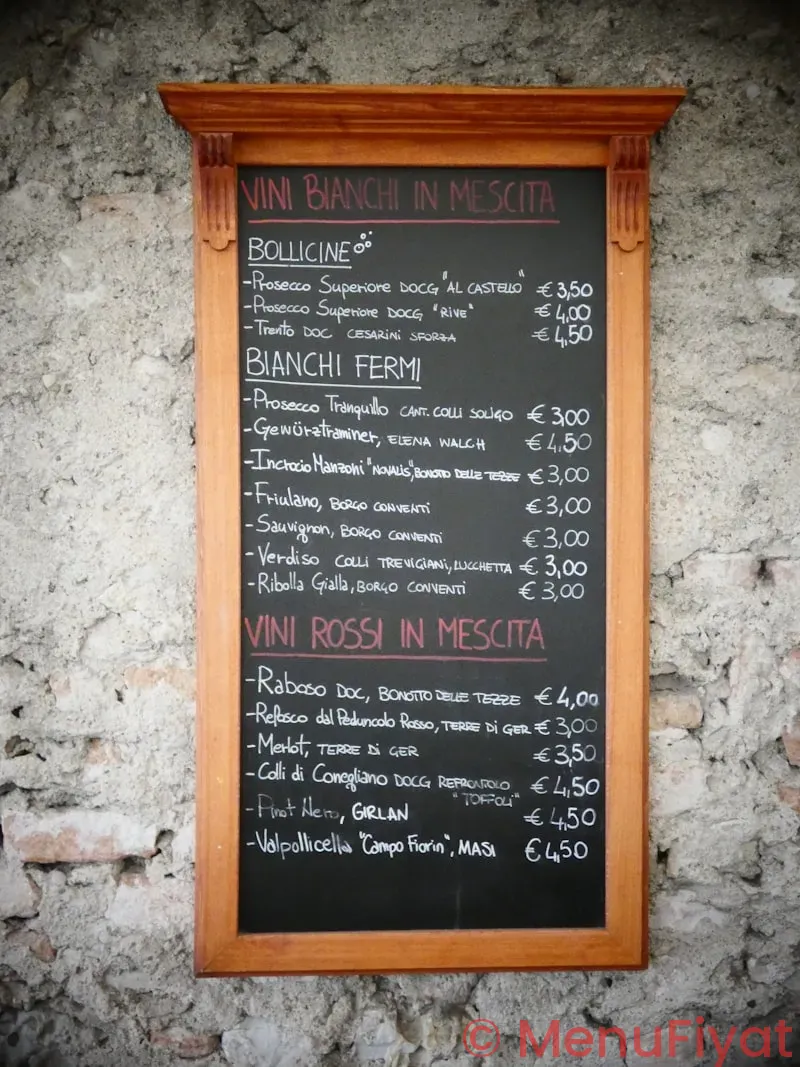 VINI BIANCHI IN MESCITA
BOLLICINE
-Prosecco Superiore DOCG "AL CASTELLO" € 3,50
-Prosecco Superiore DOCG "RIVE" € 4,00
-Trento DOC CESARINI SFORZA € 4,50
BIANCHI FERMI
-Prosecco Tranquillo CANT. COLLI SOLIGO € 3,00
-Gewürztraminer, ELENA WALCH € 4,50
-Incrocio Manzoni "NOVALIS", BONOTTO DELLE TEZZE € 3,00
-Friulano, BORGO CONVENTI € 3,00
-Sauvignon, BORGO CONVENTI € 3,00
-Verdiso COLLI TREVIGIANI, LUCCHETTA € 3,00
-Ribolla Gialla, BORGO CONVENTI € 3,00
VINI ROSSI IN MESCITA
-Raboso DOC, BONOTTO DELLE TEZZE € 4,00
-Refosco dal Peduncolo Rosso, TERRE DI GER € 3,00
-Merlot, TERRE DI GER € 3,50
-Colli di Conegliano DOCG REFRONTOLO € 4,50
"TOFFOLI"
-Pinot Nero, GIRLAN € 4,50
-Valpollicella "Campo Fiorin", MASI € 4,50
© MenuFiyat